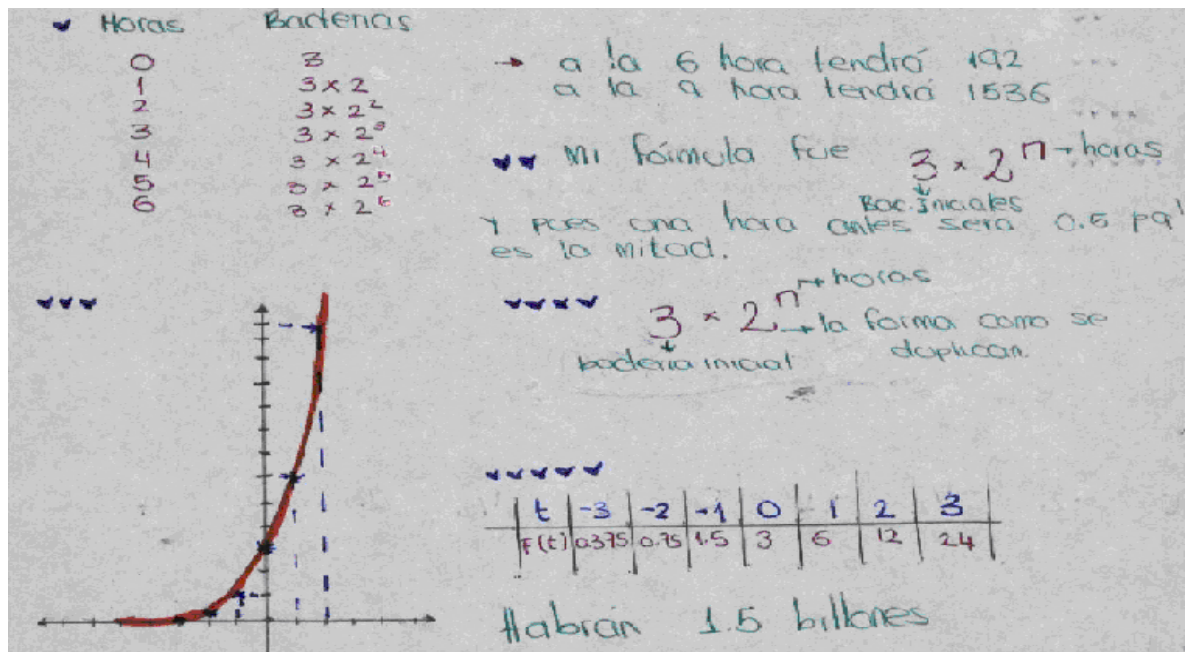 Horas Bacterias
0 3
1 3 x 2
2 3 x 2²
3 3 x 2³
4 3 x 2⁴
5 3 x 2⁵
6 3 x 2⁶
→ a la 6 hora tendrá 192
a la 9 hora tendrá 1536
Mi fórmula fue 3 x 2ⁿ → horas
Bac. Iniciales
Y pues una hora antes será 0.5 pq'
es la mitad.
3 x 2ⁿ → horas
→ la forma como se
duplican
bacteria inicial
t -3 -2 -1 0 1 2 3
F(t) 0.375 0.75 1.5 3 6 12 24
Habrán 1.5 billones